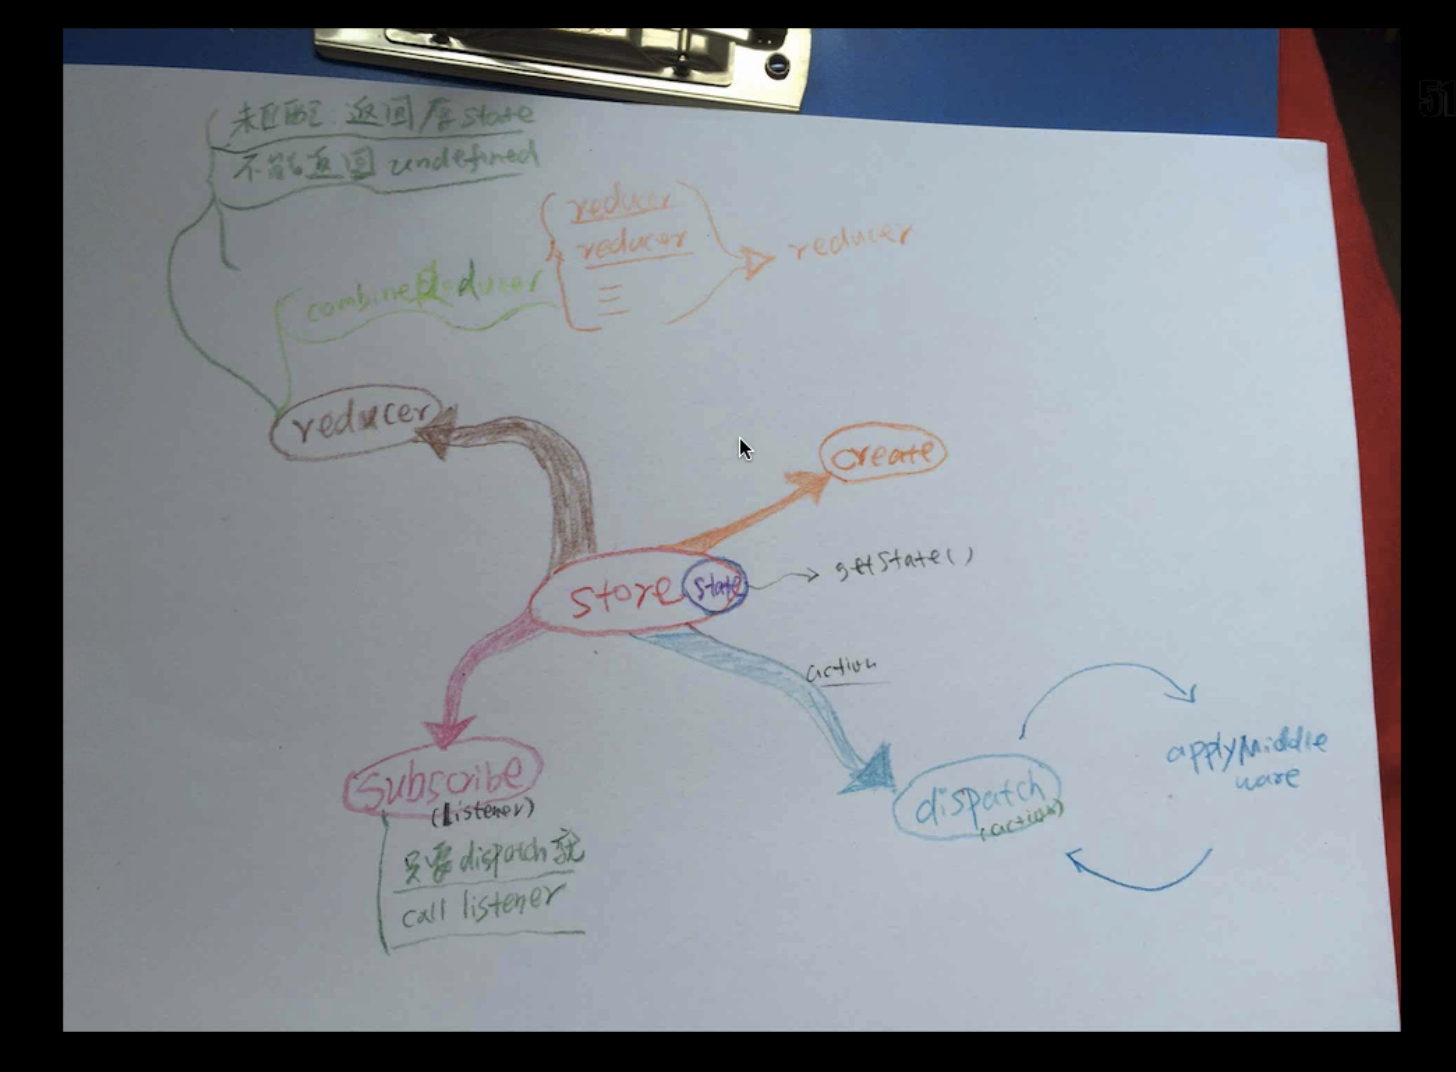 未匹配 返回原state
不能返回 undefined
reducer
reducer
reducer
combineReducer
reducer
create
store
state
getState()
action
subscribe
(listener)
只要dispatch就
call listener
dispatch
(action)
applyMiddle
ware